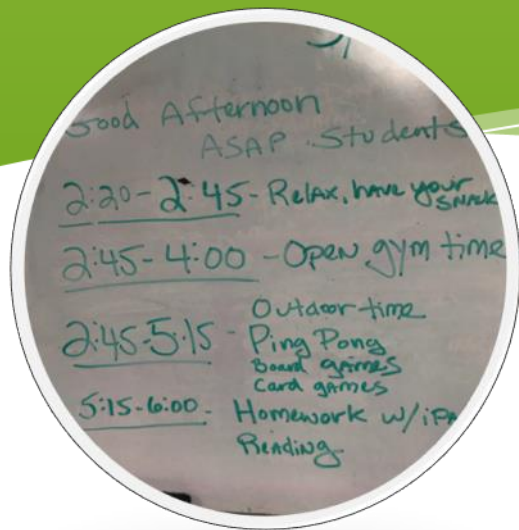 Good Afternoon
ASAP Students
2:20-2:45 - Relax, have your
snack
2:45-4:00 - Open gym time
Outdoor time
2:45-5:15 - Ping Pong
Board games
Card games
5:15-6:00 - Homework w/
Reading